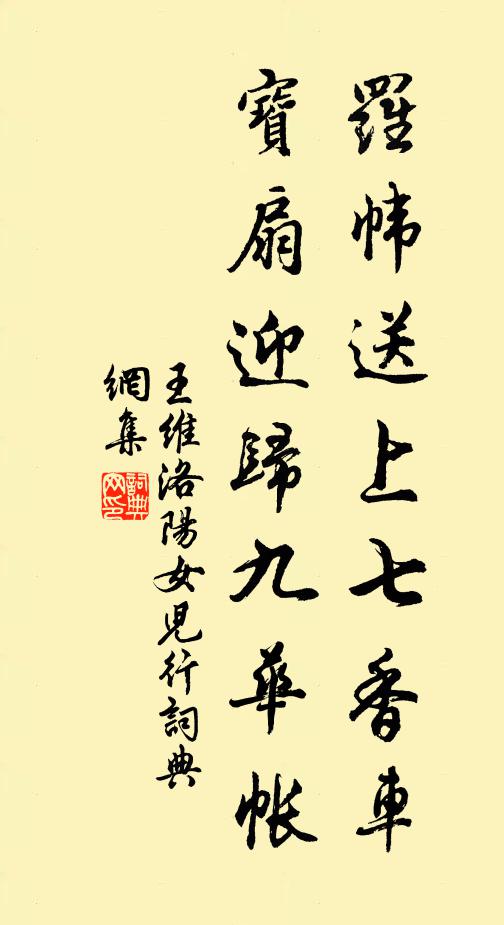 羅幃送上七香車
寶扇迎歸九華帳
王維洛陽女兒行詞典
網集
詞典網印